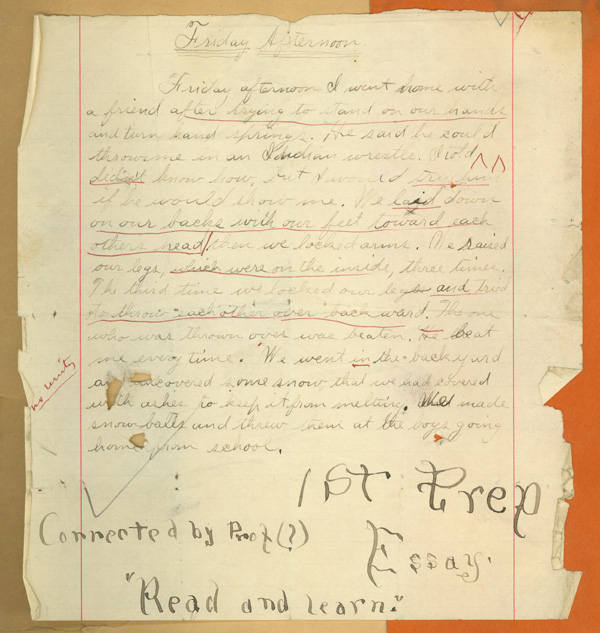 Friday Afternoon
Friday afternoon I went home with
a friend after trying to stand on our hands
and turn hand springs. He said he could
throw me in an Indian wrestle. I told
didn't know how, but I would try him
if he would show me. We laid down
on our backs with our feet toward each
others head, then we locked arms. We raised
our legs, which were on the inside, three times.
The third time we locked our legs and tried
to throw each other over backward. The one
who was thrown over was beaten. He beat
me every time. We went in the back yard
uncovered some snow that we had covered
with ashes to keep it from melting. We made
snow balls and threw them at the boys going
home from school.
no unity
1st Prep
Corrected by Prof (?)
Essay.
"Read and learn."